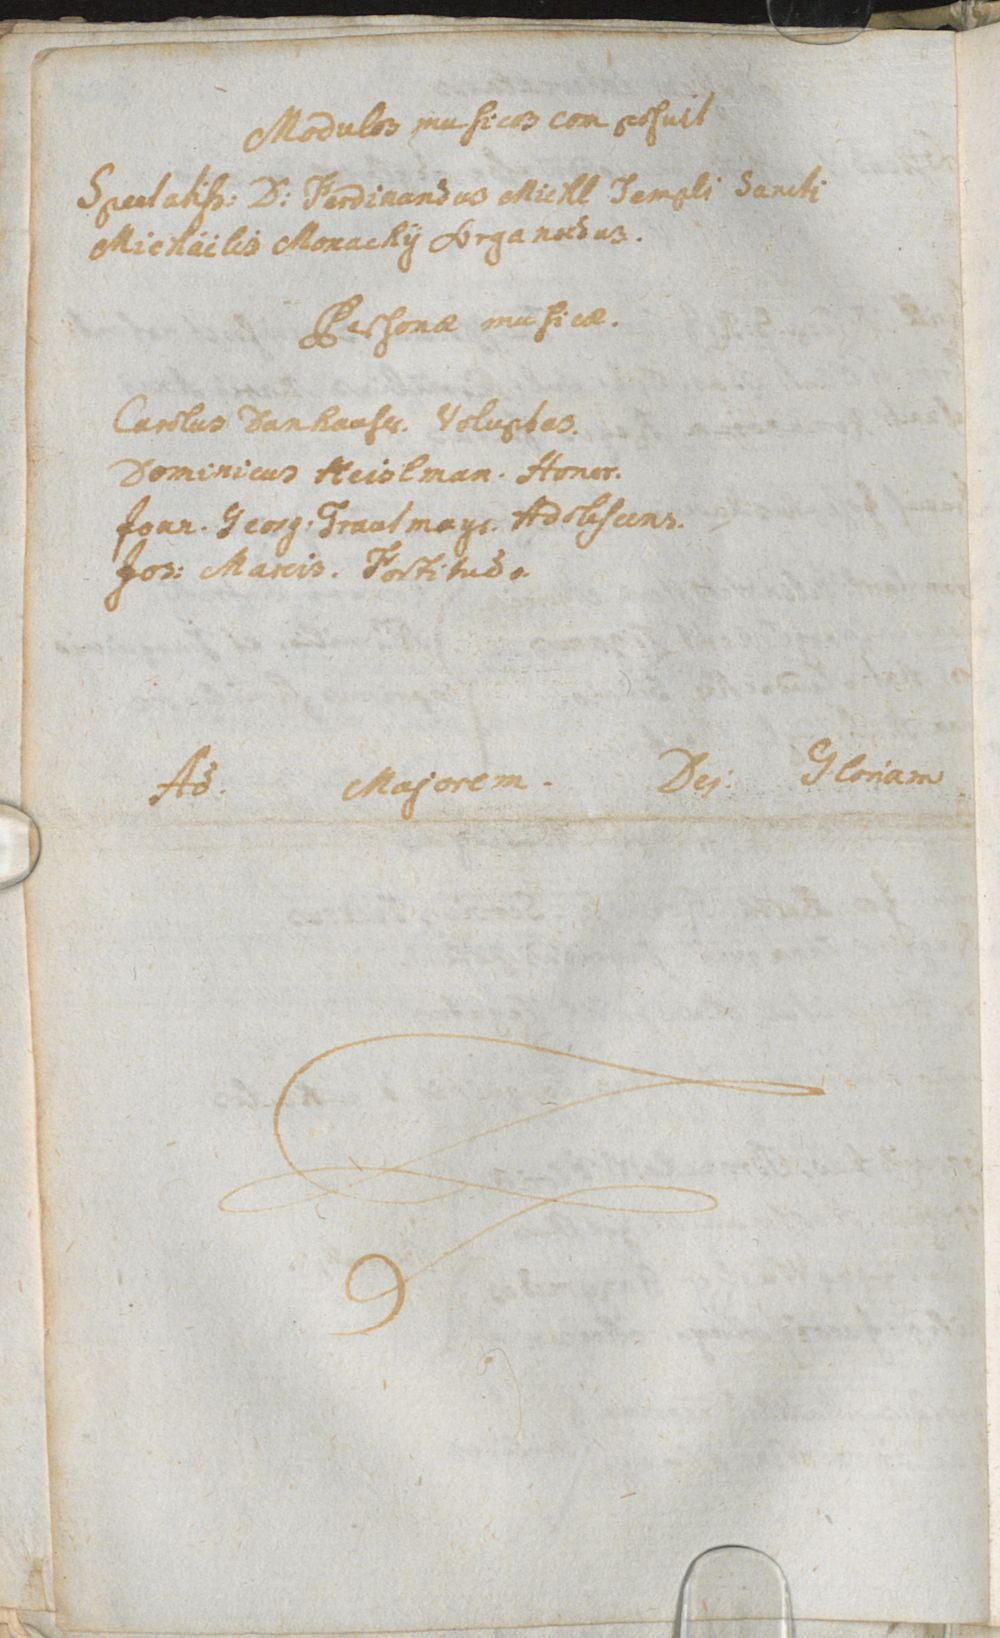 Modulos musicos composuit
Spectatiss: D: Ferdinandus Michl Templi Sancti
Michäelis Monachÿ Organædus.
Personæ musicæ.
Carolus Danhauser. Voluptas.
Dominicus Heislman. Honor.
Joan. Georg: Trautmayr. Adolescens.
Jos: Marcis. Fortitudo.
Ad. Majorem. Dej: Gloriam